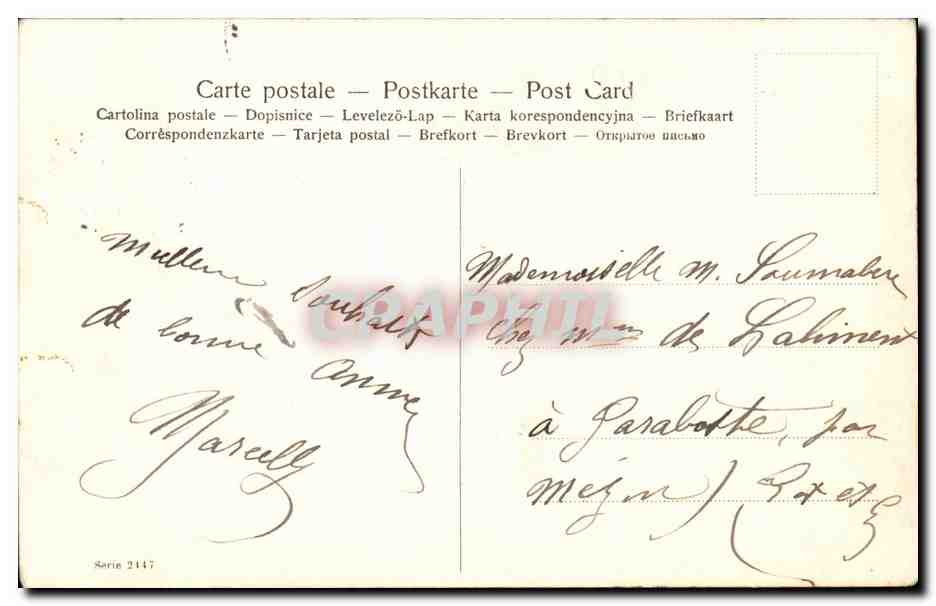 Carte postale — Postkarte — Post Card
Cartolina postale — Dopisnice — Levelezö-Lap — Karta korespondencyjna — Briefkaart
Corrèspondenzkarte — Tarjeta postal — Brefkort — Brevkort — Открытое письмо
Meilleurs souhaits
de bonne année
Marcelle
Mademoiselle M. Soumabere
chez Mme de Laliment
à Garaboste, par
Mézin) Lot et G
CPAPHIL
Serie 2447